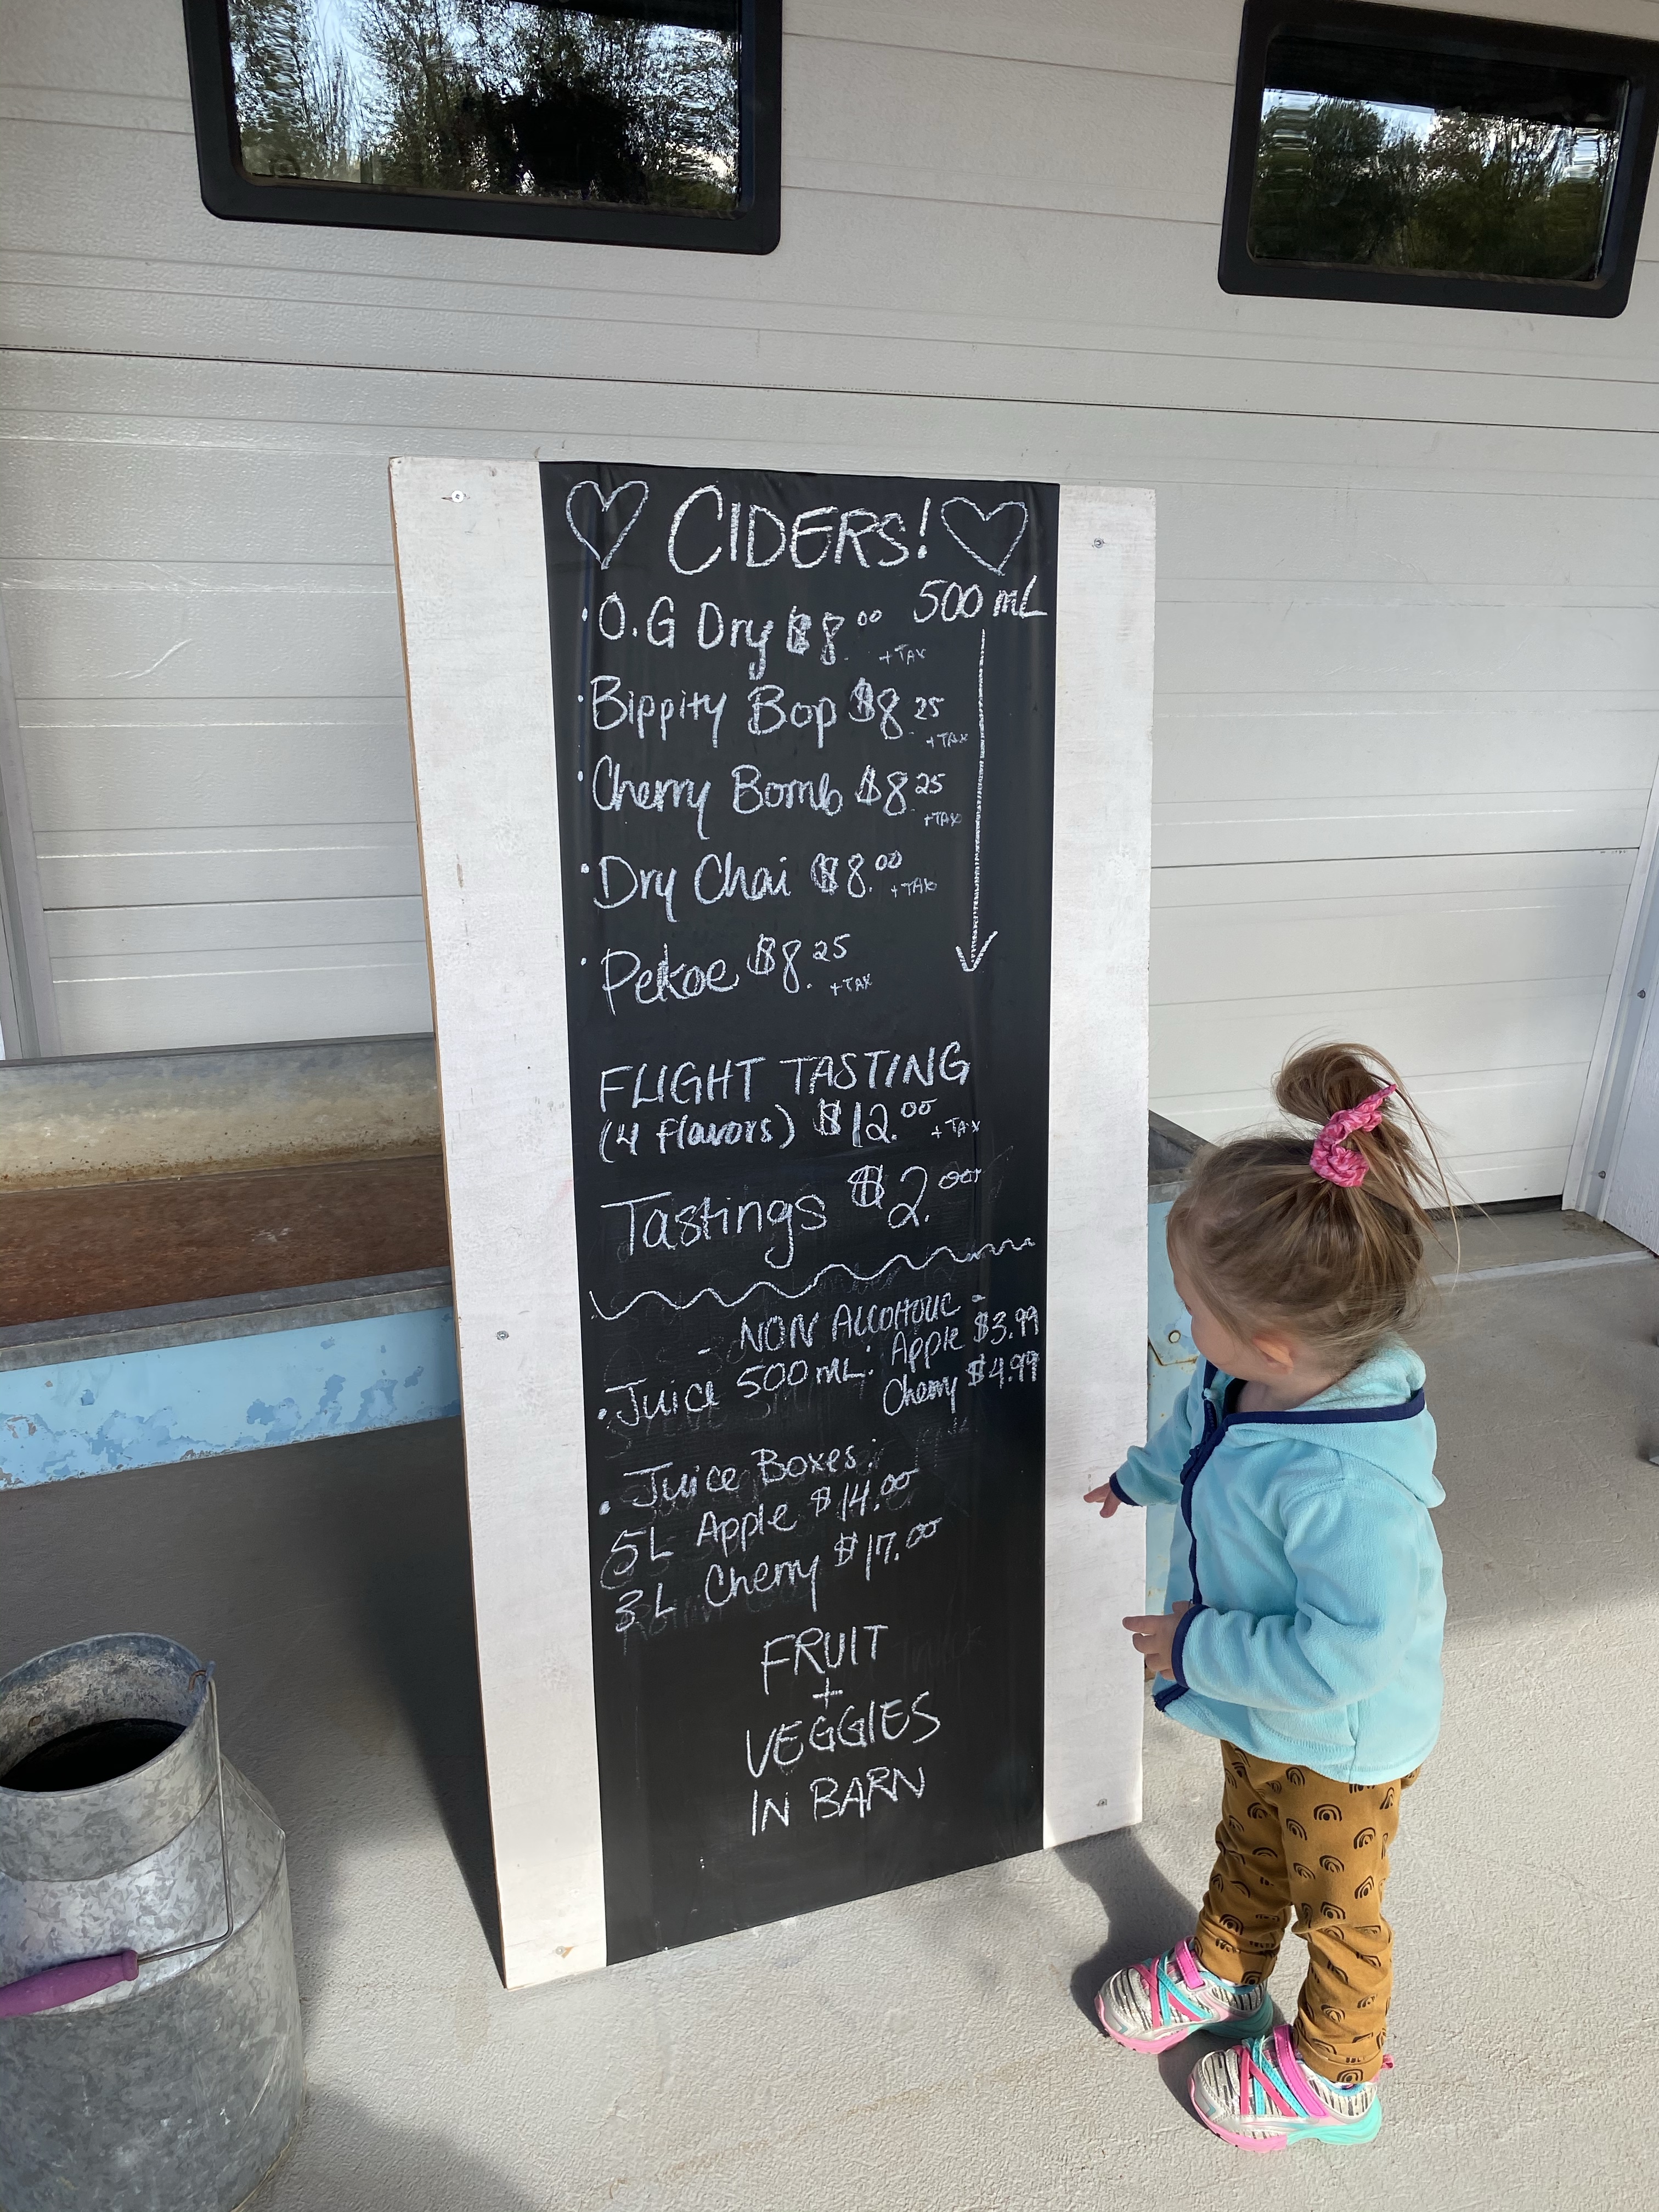 CIDERS!
500 mL
• O.G Dry $8.00 + TAX
• Bippity Bop $8.25 + TAX
• Cherry Bomb $8.25 + TAX
• Dry Chai $8.00 + TAX
• Pekoe $8.25 + TAX
FLIGHT TASTING
(4 flavors) $12.00 + TAX
Tastings $2.00
- NON ALCOHOLIC -
• Juice 500 mL: Apple $3.99
Cherry $4.99
• Juice Boxes:
5L Apple $14.00
3L Cherry $17.00
FRUIT
+
VEGGIES
IN BARN